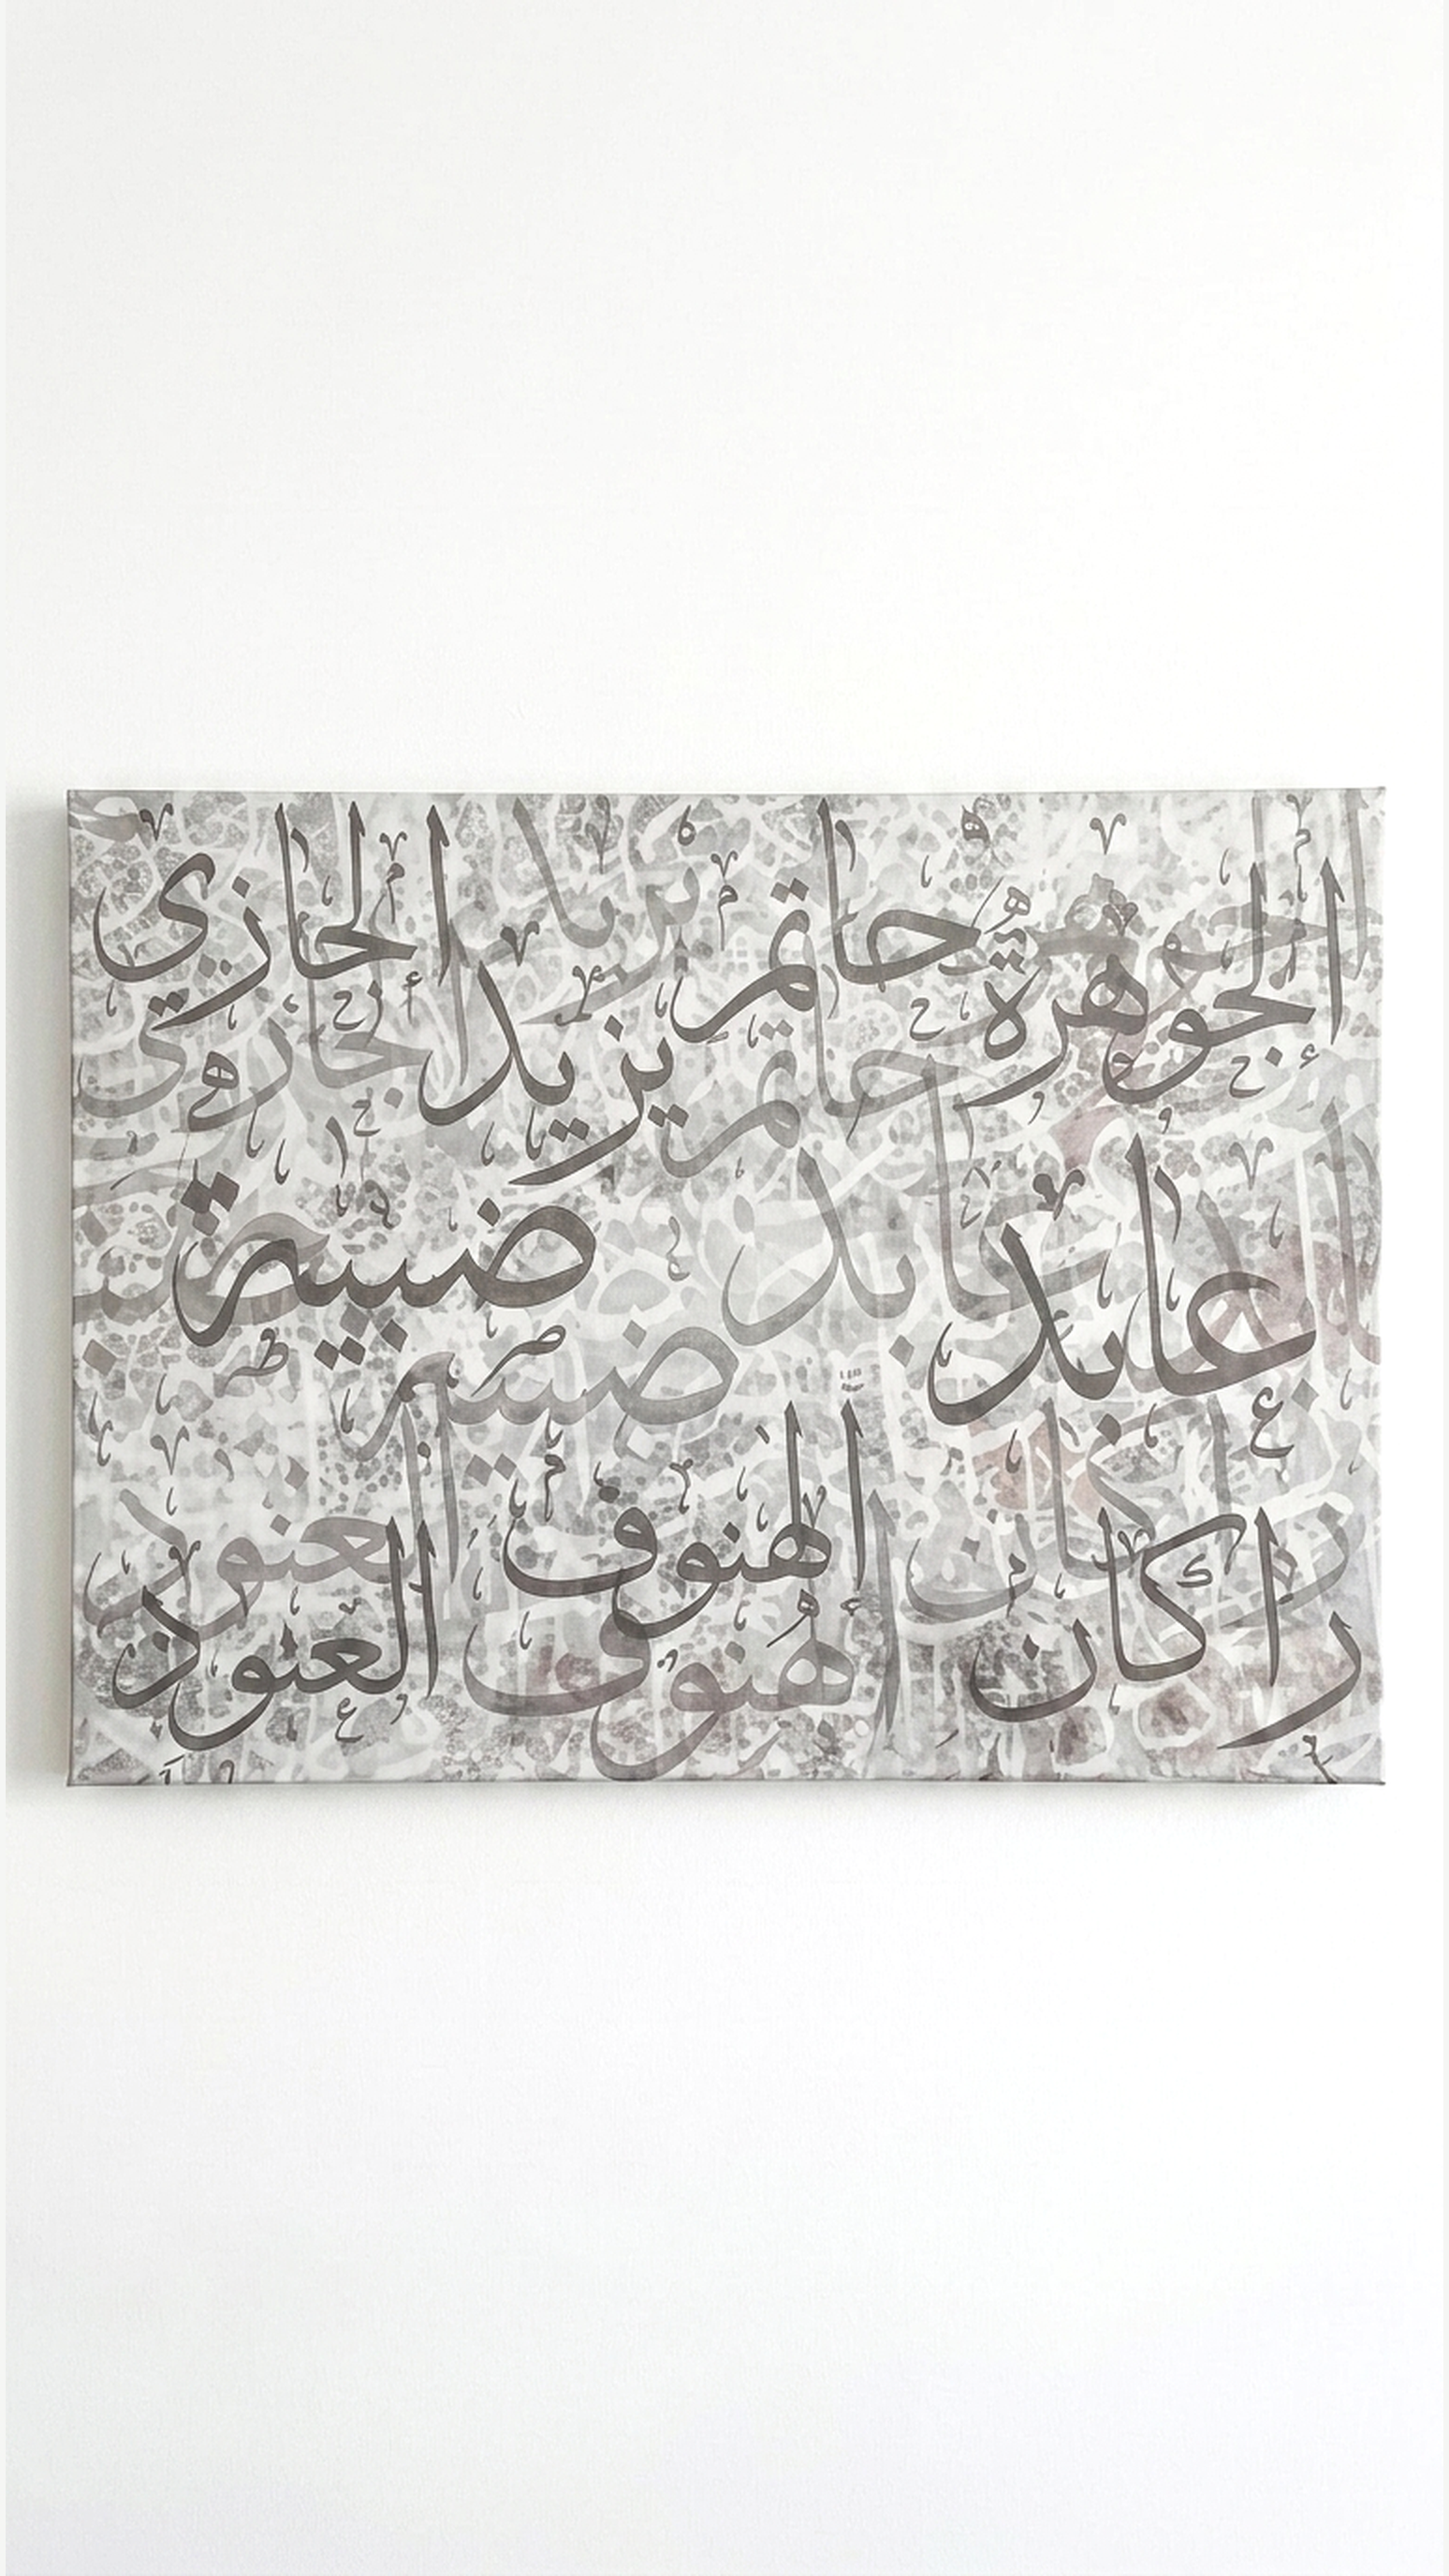 الجوهرة حاتم يزيد الحازي
عابد ضبية
راكان الهنوف العنود